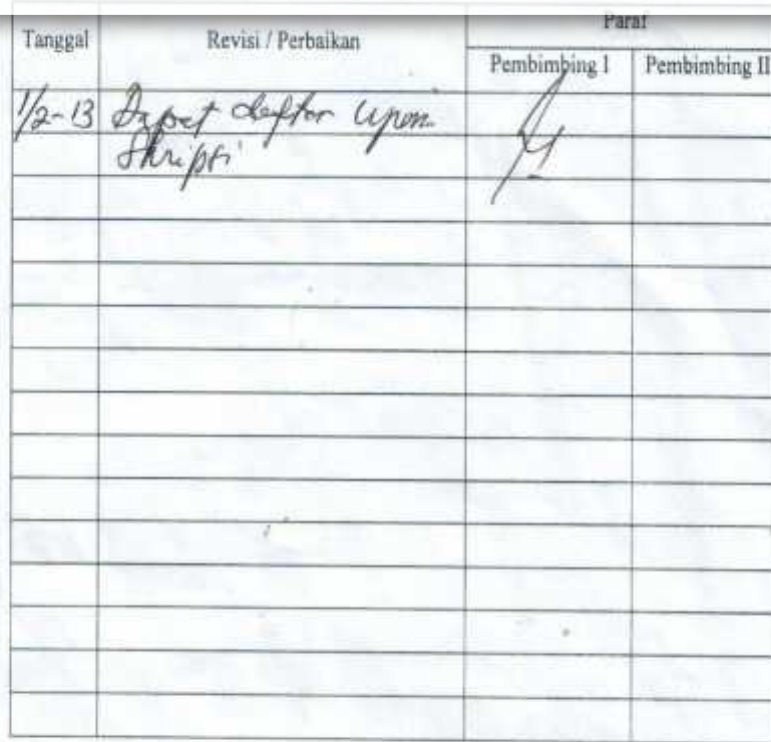 Paraf
Tanggal Revisi / Perbaikan
Pembimbing I Pembimbing II
1/2-13 Dapat daftar ujian
Skripsi